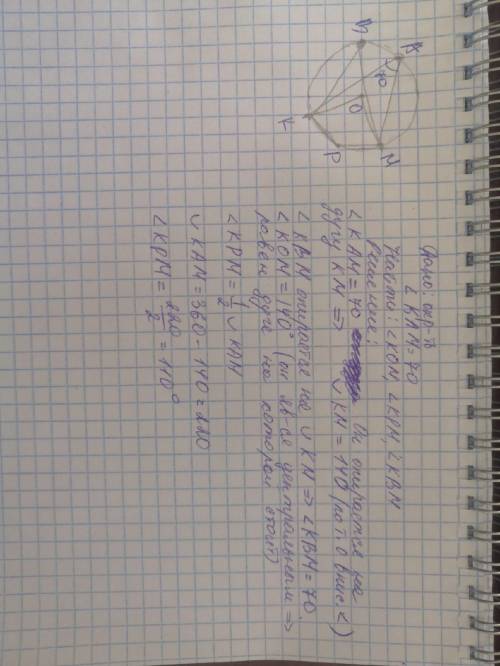 Дано: окр-ть
∠KAM=70
Найти: ∠KOM, ∠KPM, ∠KBM
Решение:
∠KAM=70 Он опирается на
дугу KM => ◡KM = 140 (по т. о впис. <)
∠KBM опирается на ◡KM => ∠KBM=70
∠KOM=140° (он явл-ся центральным =>
равен дуге на которой)
∠KPM = 1/2 ◡KAM
◡KAM=360-140=220
∠KPM = 220/2 = 110°
B
A
70
O
K
P
M